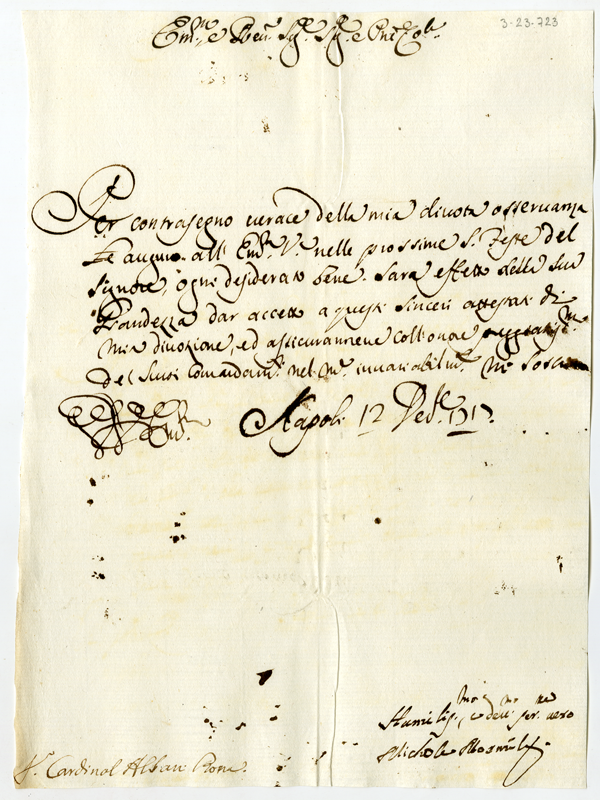 3-23-723
Em.o e Reu.
Per contrasegno uerace della mia diuota osseruanza
Le auguro all' Em.a V.a nelle prossime S. Feste del
Signore, ogni desiderato bene. Sarà effetto della sua
Grandezza dar accetto a questi sinceri attestati di
mia diuozione, ed assicurarmene coll'onore
de' Suoi Comandam.ti nel
Napoli 12 Xbre 1717.
Humiliss.mo, e deu.mo ser. uero
Sr. Cardinal Albani Roma.